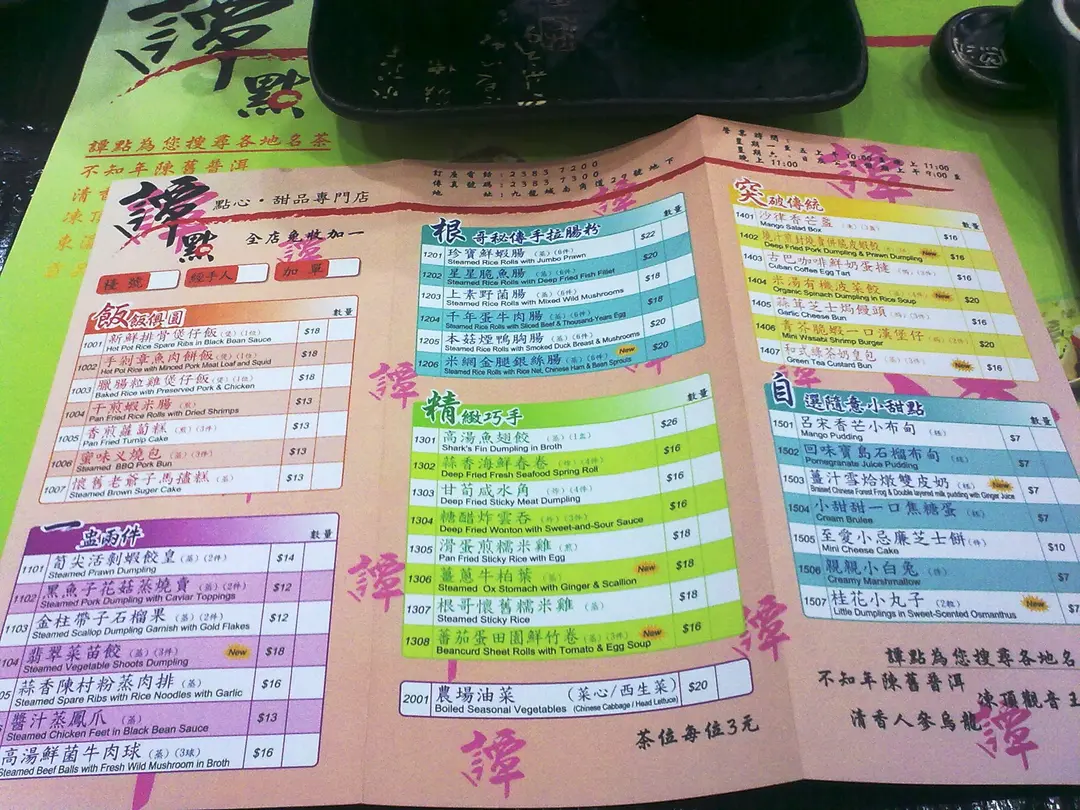 譚點
譚點為您搜尋各地名茶
不知年陳舊普洱
譚點
點心·甜品專門店
全店免收加一
訂座電話：2383 7200
傳真號碼：2383 7300
地址：九龍城南角道27號地下
檯號
經手人
加單
飯飯俱圓 數量
1001 新鮮排骨煲仔飯(煲)(1位) $18
Hot Pot Rice Spare Ribs in Black Bean Sauce
1002 手剁章魚肉餅飯(煲)(1位) $18
Hot Pot Rice with Minced Pork Meat Loaf and Squid
1003 臘腸粒雞煲仔飯(煲)(1位) $18
Baked Rice with Preserved Pork & Chicken
1004 干煎蝦米腸(煎) $13
Pan Fried Rice Rolls with Dried Shrimps
1005 香煎蘿蔔糕(煎)(3件) $13
Pan Fried Turnip Cake
1006 蜜味义燒包(蒸)(3件) $13
Steamed BBQ Pork Bun
1007 懷舊老爺子馬孻糕(蒸) $13
Steamed Brown Suger Cake
一盅兩件 數量
1101 荀尖活剝蝦餃皇(蒸)(2件) $14
Steamed Prawn Dumpling
1102 黑魚子花菇蒸燒賣(蒸)(2件) $12
Steamed Pork Dumpling with Caviar Toppings
1103 金柱帶子石榴果(蒸)(2件) $12
Steamed Scallop Dumpling Garnish with Gold Flakes
104 翡翠菜苗餃(蒸)(3件) New $18
Steamed Vegetable Shoots Dumpling
05 蒜香陳村粉蒸肉排(蒸) $16
Steamed Spare Ribs with Rice Noodles with Garlic
醬汁蒸鳳爪(蒸) $13
Steamed Chicken Feet in Black Bean Sauce
高湯鮮菌牛肉球(蒸)(3球) $16
Steamed Beef Balls with Fresh Wild Mushroom in Broth
根哥秘傳手拉腸粉 數量
1201 珍寶鮮蝦腸(蒸)(6件) $22
Steamed Rice Rolls with Jumbo Prawn
1202 星星脆魚腸(蒸)(6件) $20
Steamed Rice Rolls with Deep Fried Fish Fillet
1203 上素野菌腸(蒸)(6件) $18
Steamed Rice Rolls with Mixed Wild Mushrooms
1204 千年蛋牛肉腸(蒸)(6件) $18
Steamed Rice Rolls with Sliced Beef & Thousand-Years Egg
1205 本菇煙鴨胸腸(蒸)(6件) $20
Steamed Rice Rolls with Smoked Duck Breast & Mushrooms
1206 米網金腿銀絲腸(蒸)(6件) New $20
Steamed Rice Rolls with Rice Net, Chinese Ham & Bean Sprouts
精緻巧手 數量
1301 高湯魚翅餃(蒸)(1盅) $26
Shark's Fin Dumpling in Broth
1302 蒜香海鮮春卷(炸)(4件) $16
Deep Fried Fresh Seafood Spring Roll
1303 甘荀咸水角(炸)(4件) $16
Deep Fried Sticky Meat Dumpling
1304 糖醋炸雲吞(炸)(3件) $16
Deep Fried Wonton with Sweet-and-Sour Sauce
1305 滑蛋煎糯米雞(煎) $18
Pan Fried Sticky Rice with Egg
1306 薑蔥牛柏葉(蒸) New $18
Steamed Ox Stomach with Ginger & Scallion
1307 根哥懷舊糯米雞(蒸) $18
Steamed Sticky Rice
1308 蕃茄蛋田園鮮竹卷(蒸)(3件) New $16
Beancurd Sheet Rolls with Tomato & Egg Soup
2001 農場油菜 (菜心/西生菜) $20
Boiled Seasonal Vegetables (Chinese Cabbage / Head Lettuce)
茶位每位3元
營業時間：
突破傳統 數量
1401 沙律香芒盞 $16
Mango Salad Box
1402 New $16
Deep Fried Pork Dumpling & Prawn Dumpling
1403 古巴咖啡鮮奶蛋撻 $16
Cuban Coffee Egg Tart
1404 米湯有機波菜餃 New $20
Organic Spinach Dumpling in Rice Soup
1405 蒜茸芝士焗饅頭 $16
Garlic Cheese Bun
1406 青芥脆蝦一口漢堡仔 $20
Mini Wasabi Shrimp Burger
1407 和式綠茶奶皇包 New $16
Green Tea Custard Bun
自選隨意小甜點 數量
1501 呂宋香芒小布甸(糕) $7
Mango Pudding
1502 回味寶島石榴布甸(糕) $7
Pomegranate Juice Pudding
1503 薑汁雪蛤燉雙皮奶(糕) New $7
Braised Chinese Forest Frog & Double layered milk pudding with Ginger Juice
1504 小甜甜一口焦糖蛋(糕) $7
Cream Brulee
1505 至愛小忌廉芝士餅(件) $10
Mini Cheese Cake
1506 親親小白兔(件) $7
Creamy Marshmallow
1507 桂花小丸子(2粒) New $7
Little Dumplings in Sweet-Scented Osmanthus
譚點為您搜尋各地名
不知年陳舊普洱
凍頂觀音王
清香人參烏龍